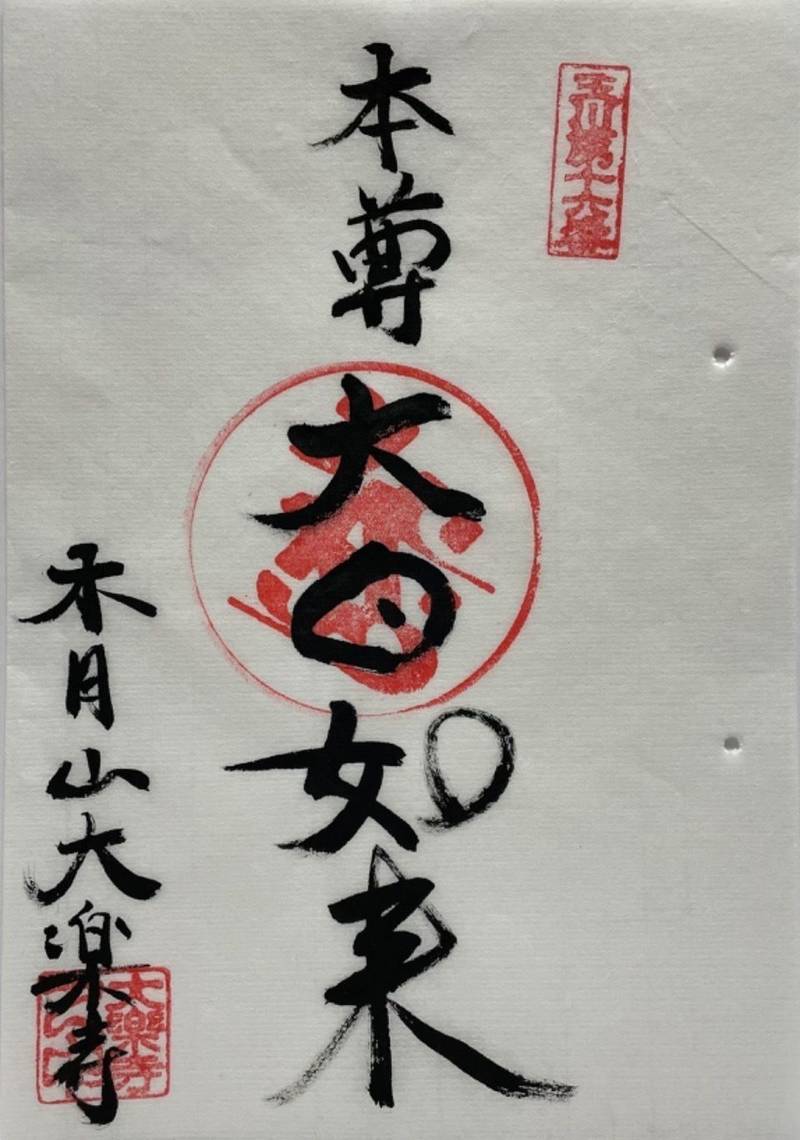 玉川第十六番
本尊
大日如来
木月山大楽寺
大樂寺